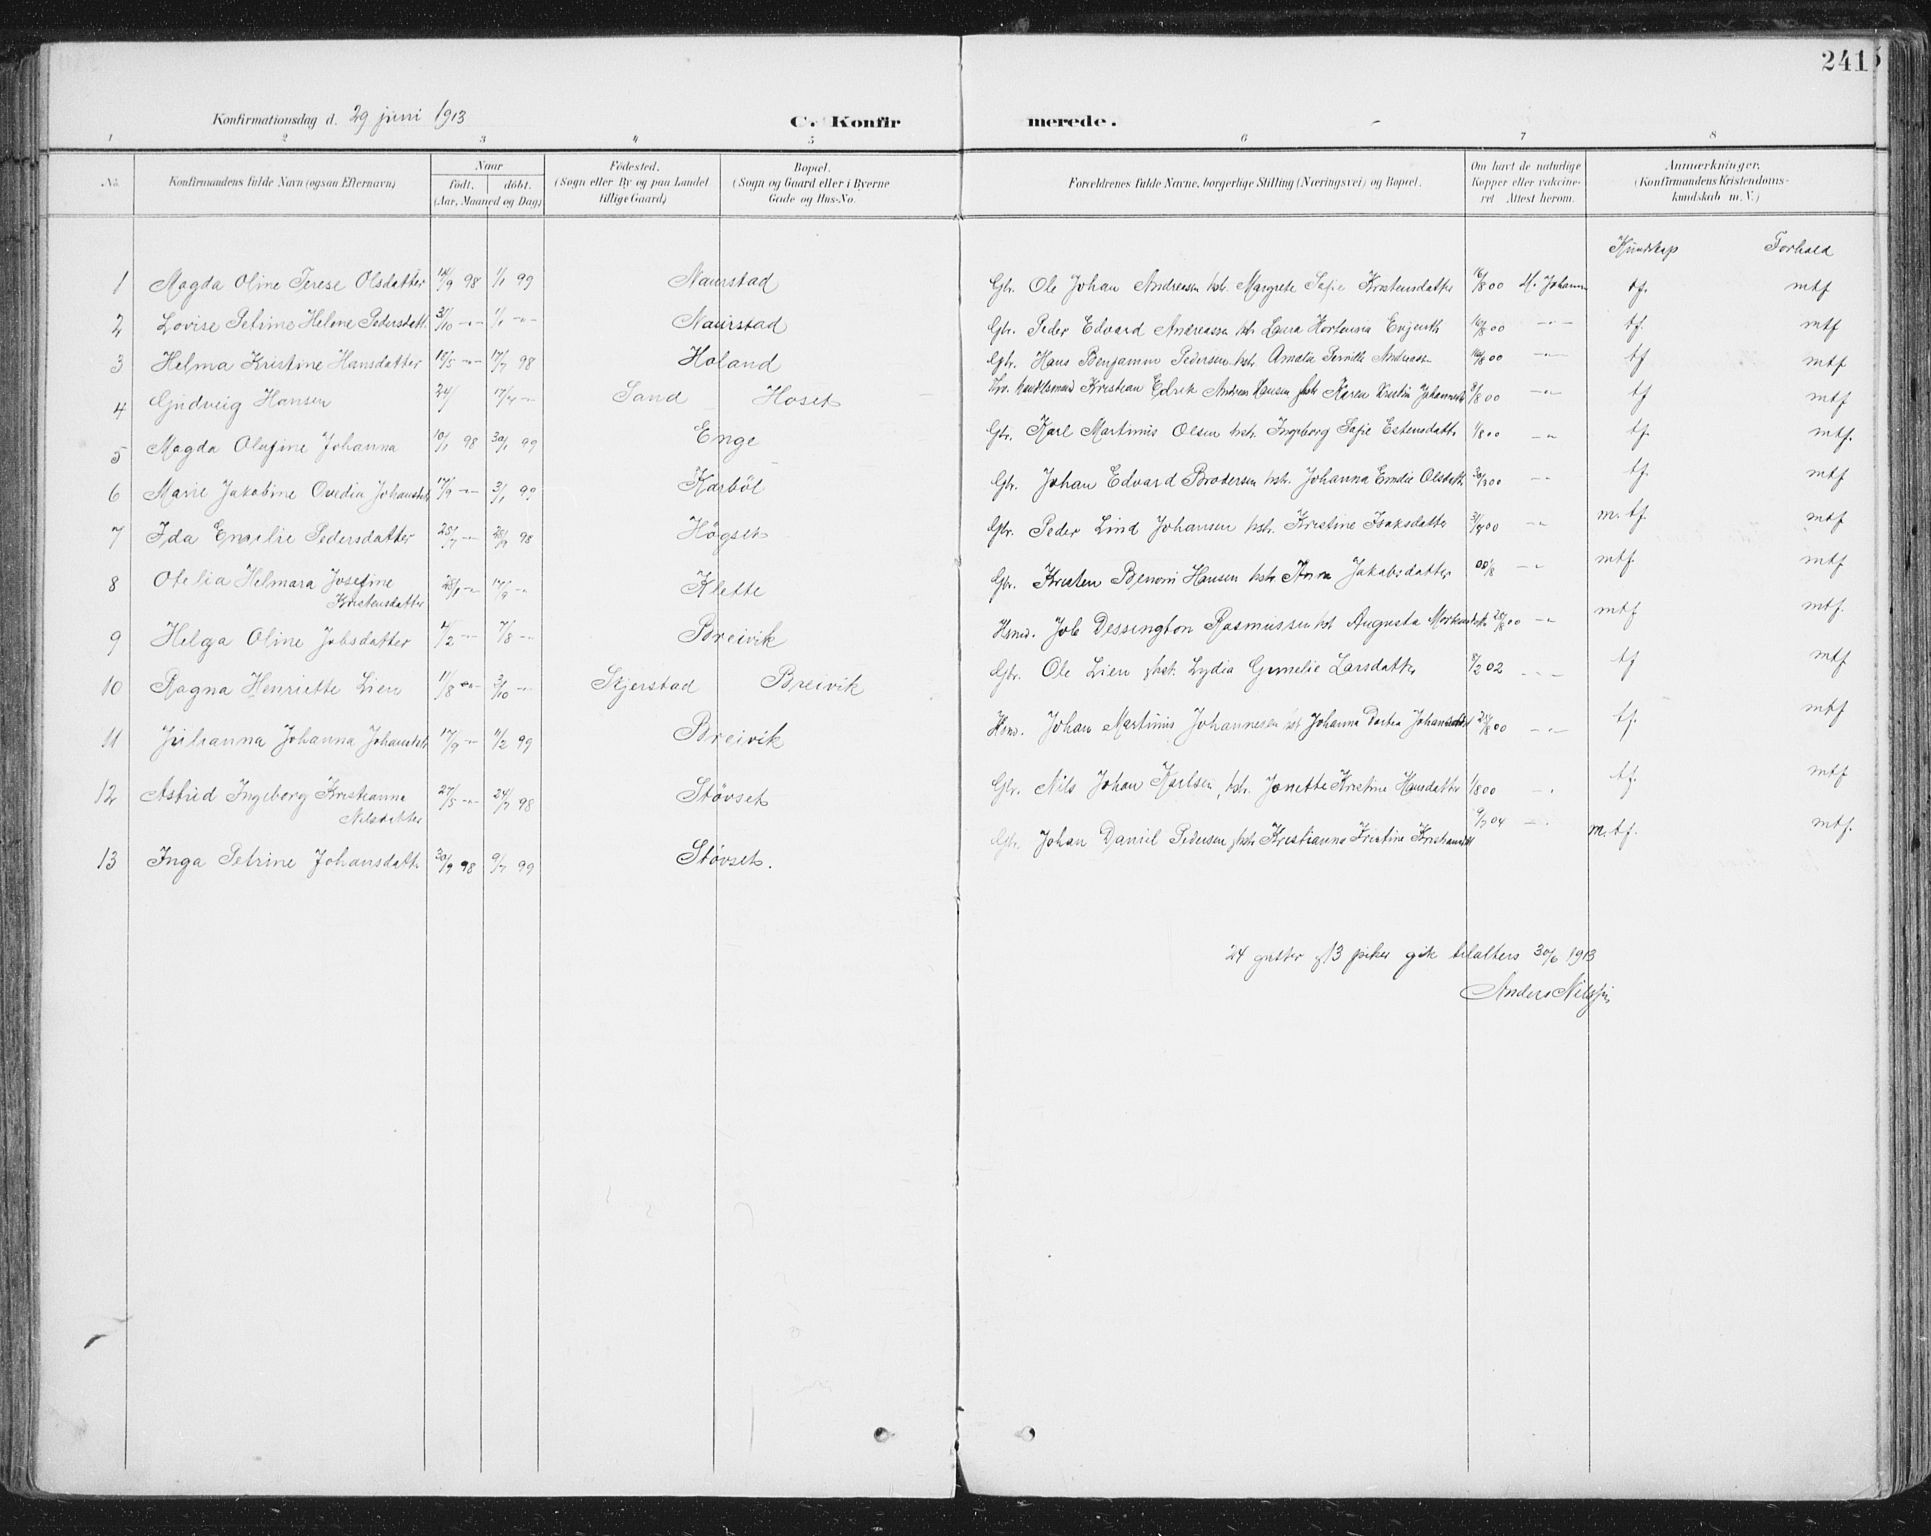 241
Konfirmationsdag d. 29 juni 1913
C. Konfir merede.
1 2 3 4 5 6 7 8
No. Konfirmandens fulde Navn (ogsaa Efternavn) Naar født. døbt. (Aar, Maaned og Dag) Fødested. (Sogn eller By og paa Landet tillige Gaard) Bopæl. (Sogn og Gaard eller i Byerne Gade og Hus-No. Forældrenes fulde Navne, borgerlige Stilling (Næringsvei) og Bopæl. Om havt de naturlige Kopper eller vakcineret Attest herom. Anmærkninger. (Konfirmandens Kristendomskundskab m. V.)
Kundskap Forhold
1 Magda Oline Terese Olsdatter 14/9 98 1/1 99 Naurstad Gbr. Ole Johan Andreassen hstr. Margrete Sofie Kristensdatter 16/8 00 M. Johannn tf. mtf
2 Lovise Petrine Helene Pedersdatt. 31/10 -"- 1/1 -"- Naurstad Gbr. Peder Edvard Andreassen hstr. Laura Hortensia Evjenth 16/8 00 -"- tf. mtf
3 Helma Kristine Hansdatter 19/5 -"- 17/7 98 Holand Gbr. Hans Benjamin Pedersen hstr. Amalia Andreasn 16/8 00 -"- tf mtf
4 Gudveig Hansen 24/ 17/4 -"- Sand Hoset Kristian Edvik Andreas Hansen hstr. Karen Kristin Johannesd 8/8 00 -"- tf mtf
5 Magda Olufine Johanna 10/1 98 30/1 99 Enge Gbr. Karl Martinus Olsen hstr. Ingeborg Sofie Estensdatt. 1/8 00 -"- tf. mtf.
6 Marie Jakobine Ovedia Johansdt 17/9 -"- 3/1 99 Karbøl Gbr. Johan Edvard Brodersen hstr. Johanna Emilie Olsdatt. 30/3 00 -"- tf. mtf
7 Ida Emilie Pedersdatter 25/7 -"- 28/9 98 Høgset Gbr. Peder Lind Johansen hstr. Kristine Isaksdatter 31/7 00 -"- m.tf. mtf
8 Otelia Helmara Josefine Kristensdatter 28/1 -"- 17/9 -"- Klette Gbr. Kristen Benoni Hansen hstr. Anna Jakobsdatter -"- mtf. mtf
9 Helga Oline Jobsdatter 4/2 -"- 7/8 -"- Breivik Hsmd. Job Dessington Rasmussen hstr Augusta 28/8 00 -"- mtf mtf.
10 Ragna Henriette Lien 11/8 -"- 3/10 -"- Skjerstad Breivik Gbr. Ole Lien hstr. Lydia Larsdatter 8/2 02 -"- tf mtf
11 Julianna Johanna Johansdtt 17/9 -"- 11/2 99 Breivik Hsmd. Johan Martinus Johannesen hst Johanna Dortea Johansdatt 21/8 00 -"- tf. mtf
12 Astrid Ingeborg Kristianna Nilsdatter 27/5 -"- 24/7 98 Støvset Gbr. Nils Johan Karlsen, hstr. Jonette Kristine Hansdatter 1/8 00 -"- tf. mtf
13 Inga Petrine Johansdatt. 30/9 98 9/7 99 Støvset. Gbr. Johan Daniel Pedersen hstr Kristianna Kristine Kristiansdtt 9/7 04 -"- m.tf. mtf.
24 gutter og 13 piker gik tilalters 30/6 1913
Anders Nilssen